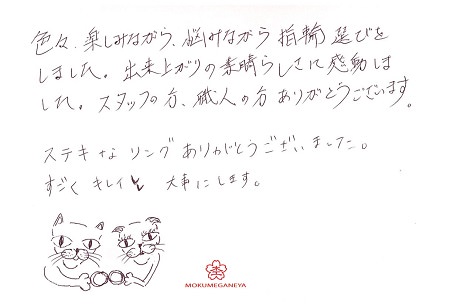 色々、楽しみながら、悩みながら 指輪 選びを
しました。出来上がりの素晴らしさに感動しま
した。スタッフの方、職人の方 ありがとうございます。
ステキな リング ありがとうございました。
すごく キレイ♥ 大事にします。
MOKUMEGANEYA